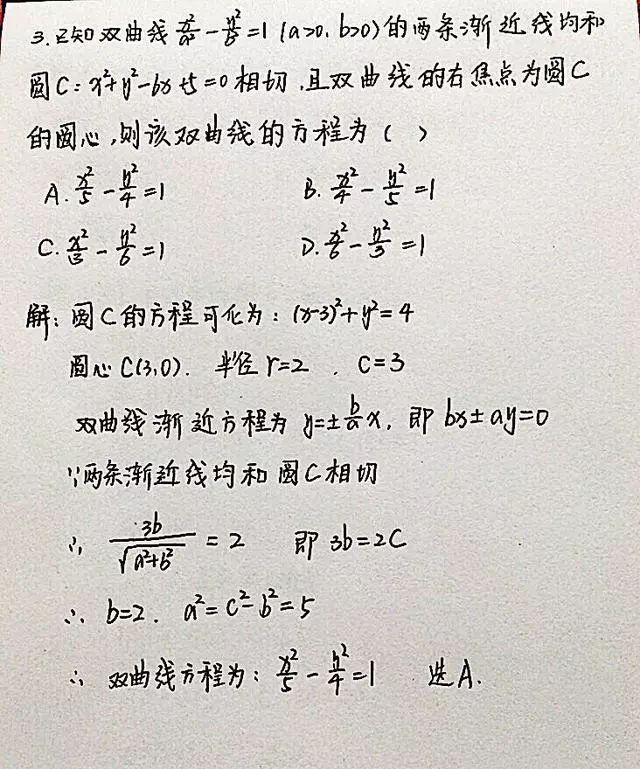 3. 已知双曲线 x²/a² - y²/b² = 1 (a>0, b>0) 的两条渐近线均和
圆C: x²+y²-6x+5=0 相切, 且双曲线的右焦点为圆C
的圆心, 则该双曲线的方程为 ( )
A. x²/5 - y²/4 = 1 B. x²/4 - y²/5 = 1
C. x²/3 - y²/6 = 1 D. x²/6 - y²/3 = 1
解: 圆C的方程可化为: (x-3)²+y²=4
圆心C(3,0). 半径 r=2 . c=3
双曲线渐近方程为 y=±b/a x, 即 bx±ay=0
∵两条渐近线均和圆C相切
∴ 3b/√(a²+b²) = 2 即 3b=2C
∴ b=2. a²=c²-b²=5
∴ 双曲线方程为: x²/5 - y²/4 = 1 选A.